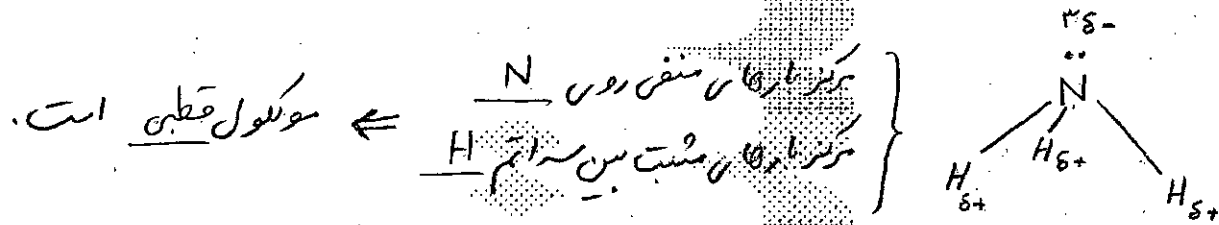 ۳δ-
N
H δ+
H δ+
H δ+
مرکز بارهای منفی روی N
مرکز بارهای مثبت بین سه اتم H
⇐ مولکول قطبی است.